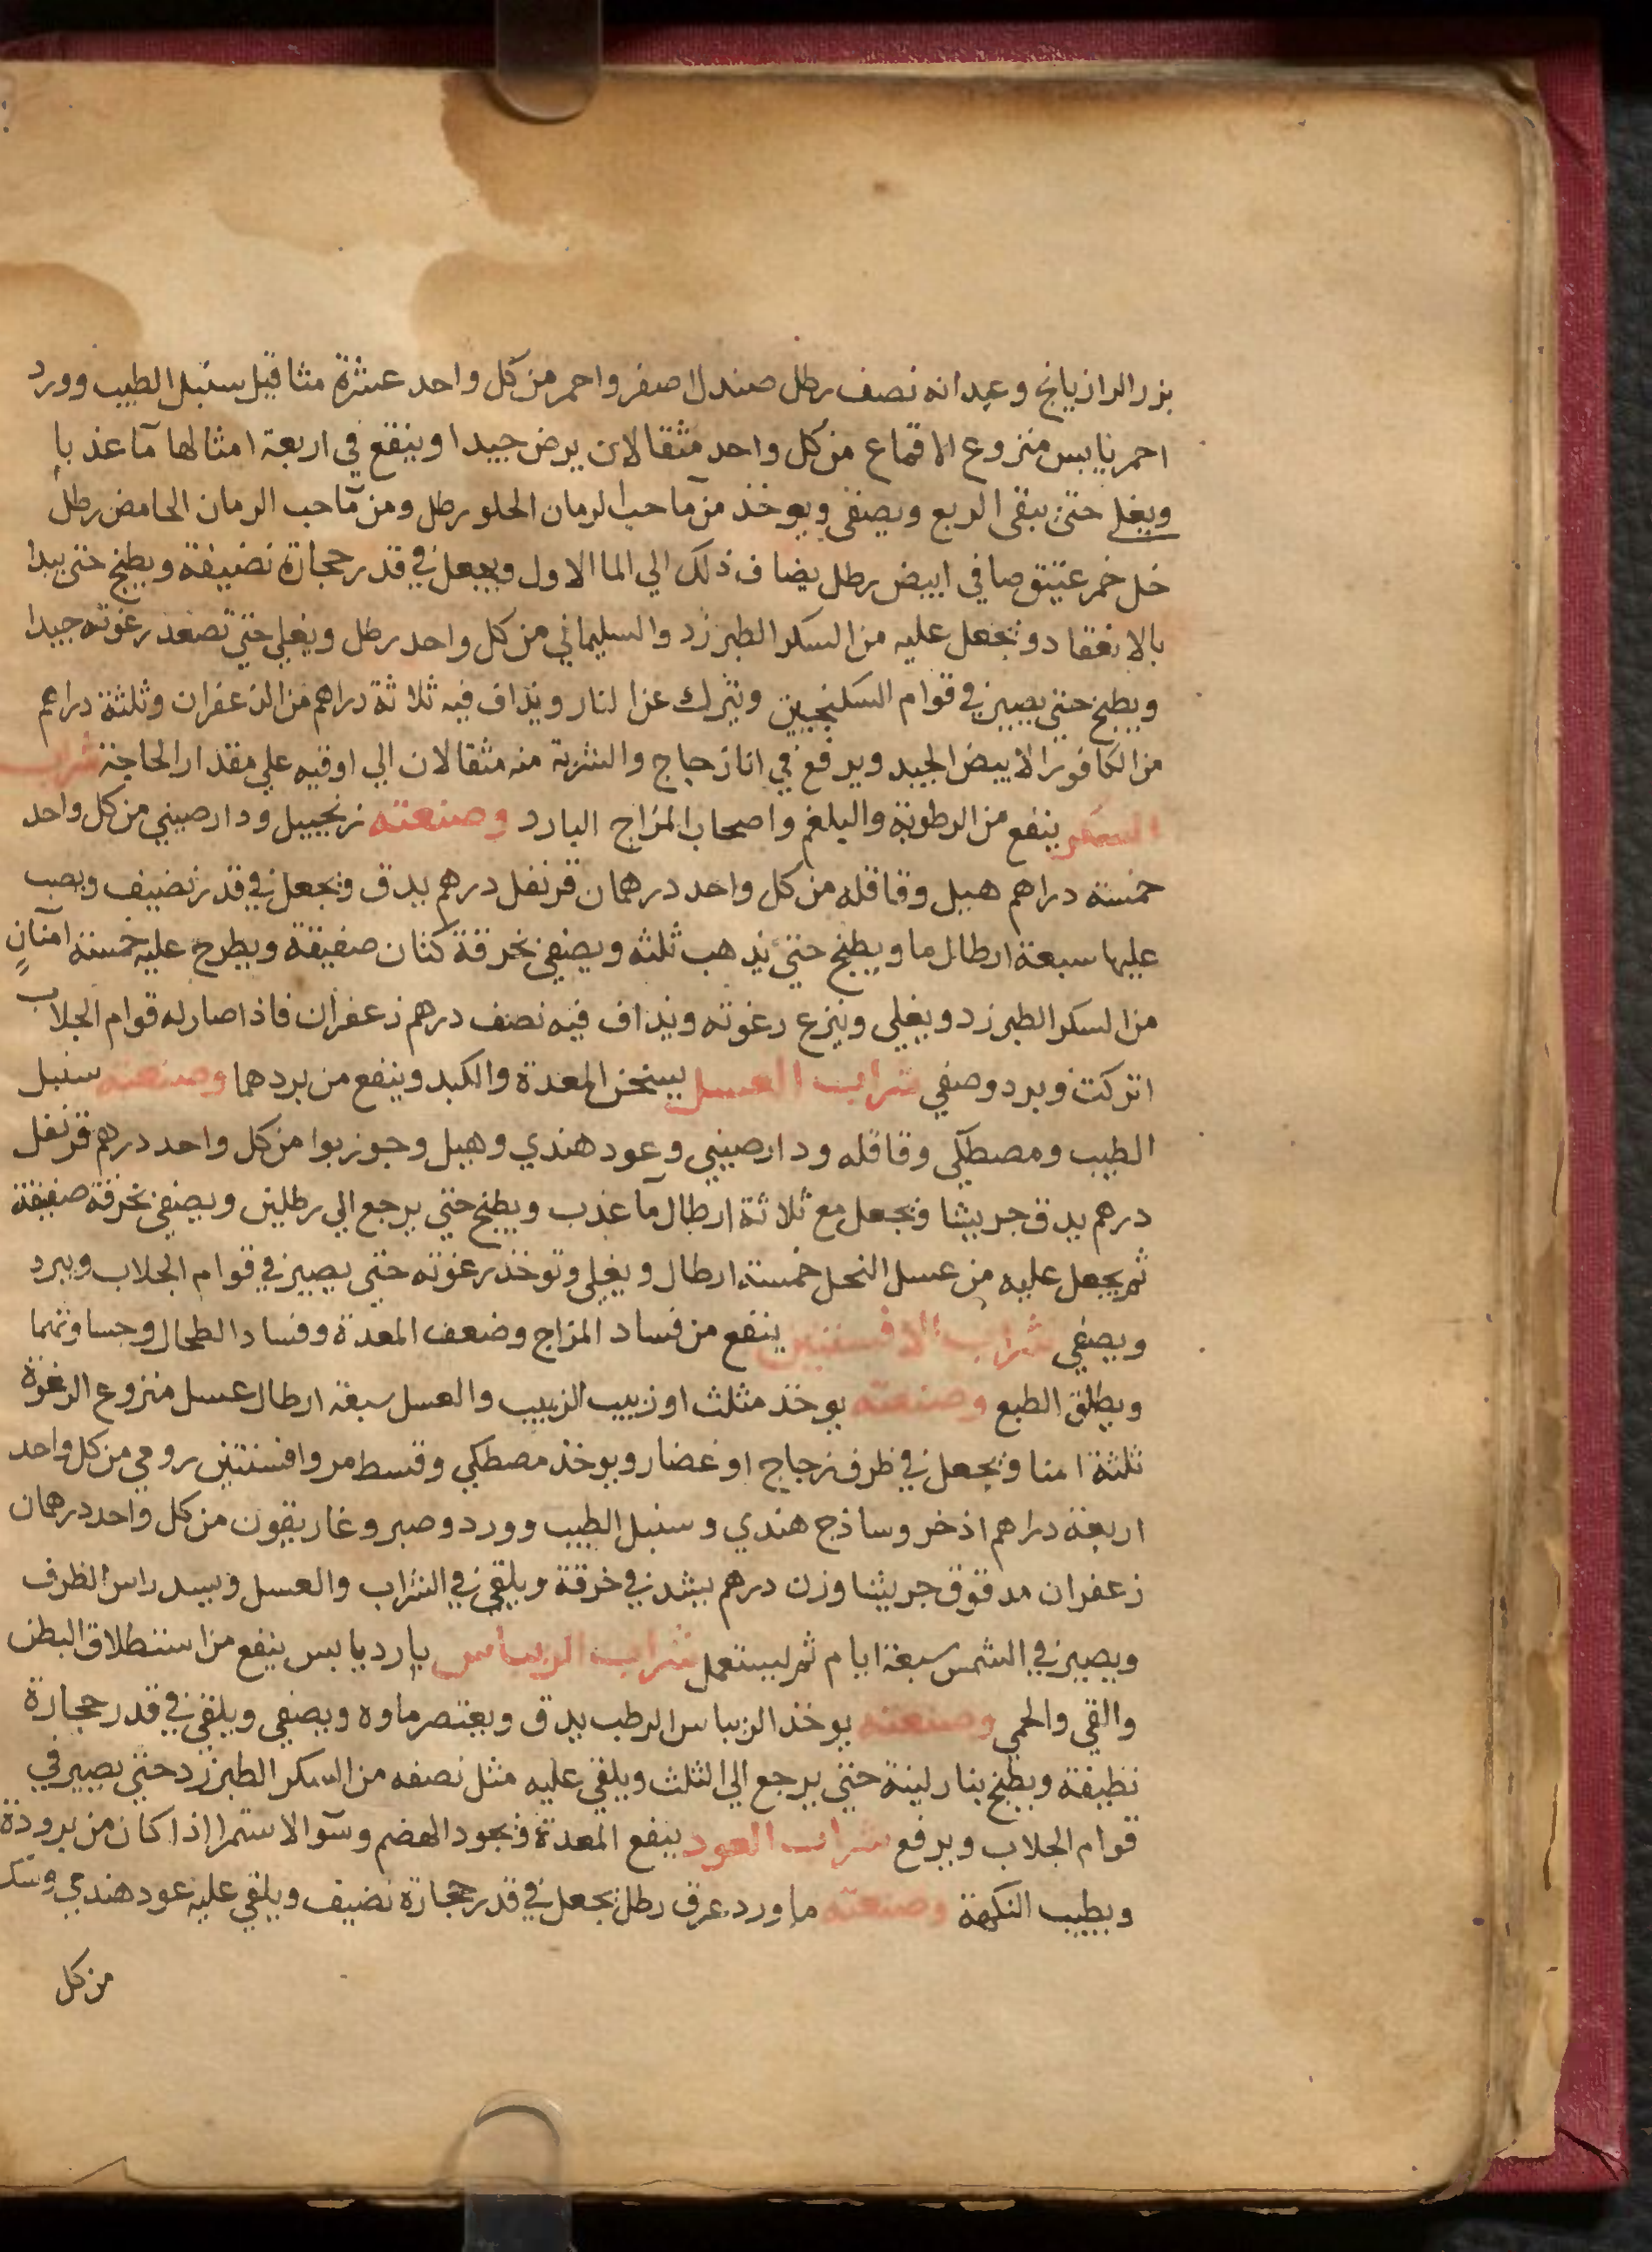 بزر الرازيانج وعيدانه نصف رطل صندل اصفر واحمر من كل واحد عشرة مثاقيل سنبل الطيب وورد
احمر يابس منزوع الاقماع من كل واحد مثقالان يرض جيدا وينقع في اربعة امثالها مآ عذبا
ويغلي حتي يبقي الربع ويصفي ويوخذ من مآ حب الرمان الحلو رطل ومن مآ حب الرمان الحامض رطل
خل خمر عتيق صافي ابيض رطل يضاف ذلك الي الما الاول ويجعل في قدر حجارة نضيفة ويطبخ حتي يبدا
بالانعقاد ويجعل عليه من السكر الطبرزد والسليماني من كل واحد رطل ويغلي حتي تصعد رغوته جيدا
ويطبخ حتي يصير في قوام السكنجبين ويترك عن النار ويذاف فيه ثلاثة دراهم من الزعفران وثلثة دراهم
من الكافور الابيض الجيد ويرفع في انا زجاج والشربة منه مثقالان الي اوقيه علي مقدار الحاجة شراب
السكر ينفع من الرطوبة والبلغم واصحاب المزاج البارد وصنعته زنجبيل ودارصيني من كل واحد
خمسة دراهم هيل وقاقله من كل واحد درهمان قرنفل درهم يدق ويجعل في قدر نضيف ويصب
عليها سبعة ارطال ما ويطبخ حتي يذهب ثلثه ويصفي بخرقة كتان صفيقة ويطرح عليه خمسة امنان
من السكر الطبرزد ويغلي وينزع رغوته ويذاف فيه نصف درهم زعفران فاذا صار له قوام الجلاب
اتركت وبرد وصفي شراب العسل يسخن المعدة والكبد وينفع من بردهما وصنعته سنبل
الطيب ومصطكي وقاقله ودارصيني وعود هندي وهيل وجوزبوا من كل واحد درهم قرنفل
درهم يدق جريشا ويجعل مع ثلاثة ارطال مآ عذب ويطبخ حتي يرجع الي رطلين ويصفي بخرقة صفيقة
ثم يجعل عليه من عسل النحل خمسة ارطال ويغلي وتوخذ رغوته حتي يصير في قوام الجلاب ويبرد
ويصفي شراب الافسنتين ينفع من فساد المزاج وضعف المعدة وفساد الطحال وجساوتهما
ويطلق الطبع وصنعته يوخذ مثلث او زبيب الزبيب والعسل سبعة ارطال عسل منزوع الرغوة
ثلثة امنا ويجعل في ظرف زجاج او غضار ويوخذ مصطكي وقسط مر وافسنتين رومي من كل واحد
اربعة دراهم اذخر وساذج هندي وسنبل الطيب وورد وصبر وغاريقون من كل واحد درهمان
زعفران مدقوق جريشا وزن درهم يشد في خرقة ويلقي في الشراب والعسل ويسد راس الظرف
ويصير في الشمس سبعة ايام ثم ليستعمل شراب الريباس بارد يابس ينفع من استطلاق البطن
والقي والحمي وصنعته يوخذ الريباس الرطب يدق ويعتصر ماوه ويصفي ويلقي في قدر حجارة
نظيفة ويطبخ بنار لينة حتي يرجع الي الثلث ويلقي عليه مثل نصفه من السكر الطبرزد حتي يصير في
قوام الجلاب ويرفع شراب العود ينفع المعدة ويجود الهضم وسوآ الاستمرا اذا كان من برودة
ويطيب النكهة وصنعته ماورد عرق رطل يجعل في قدر حجارة نضيف ويلقي عليه عود هندي وسك
من كل